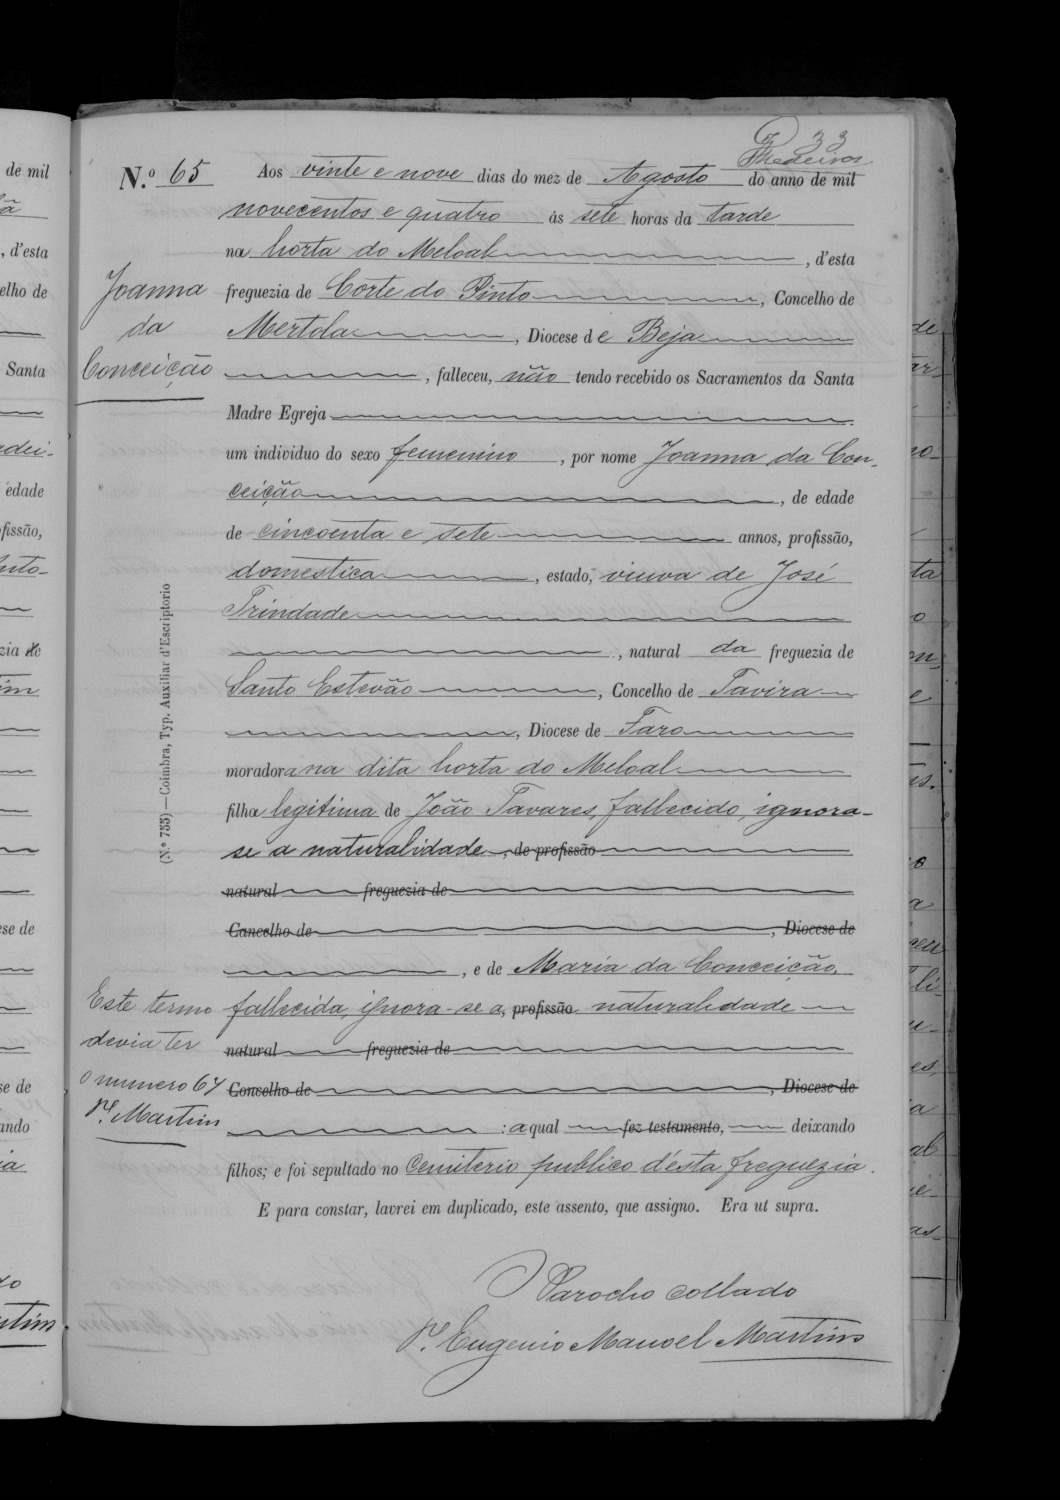 33
Medeiros
N.º 65
Aos vinte e nove dias do mez de Agosto do anno de mil
novecentos e quatro ás sete horas da tarde
na horta do Meloal, d'esta
freguezia de Corte do Pinto, Concelho de
Mertola, Diocese de Beja
, falleceu, não tendo recebido os Sacramentos da Santa
Madre Egreja
um individuo do sexo femenino, por nome Joanna da Con-
ceição, de edade
de cincoenta e sete annos, profissão,
domestica, estado, viuva de José
Trindade
, natural da freguezia de
Santo Estevão, Concelho de Tavira
, Diocese de Faro
moradora na dita horta do Meloal
filha legitima de João Tavares, fallecido, ignora-
se a naturalidade, de profissão
natural freguezia de
Cancelho de , Diocese de
, e de Maria da Conceição,
fallecida, ignora-se a profissão naturalidade
natural freguezia de
Concelho de , Diocese de
: a qual fez testamento, deixando
filhos; e foi sepultado no Cemiterio publico d'esta freguezia.
E para constar, lavrei em duplicado, este assento, que assigno. Era ut supra.
O Parocho collado
P.e Eugenio Manoel Martins
Joanna
da
Conceição
Este termo
devia ter
o numero 67
P.e Martins
(N.º 753)—Coimbra, Typ. Auxiliar d'Escriptorio
de mil
, d'esta
elho de
Santa
edade
fissão,
zia de
ese de
se de
ando